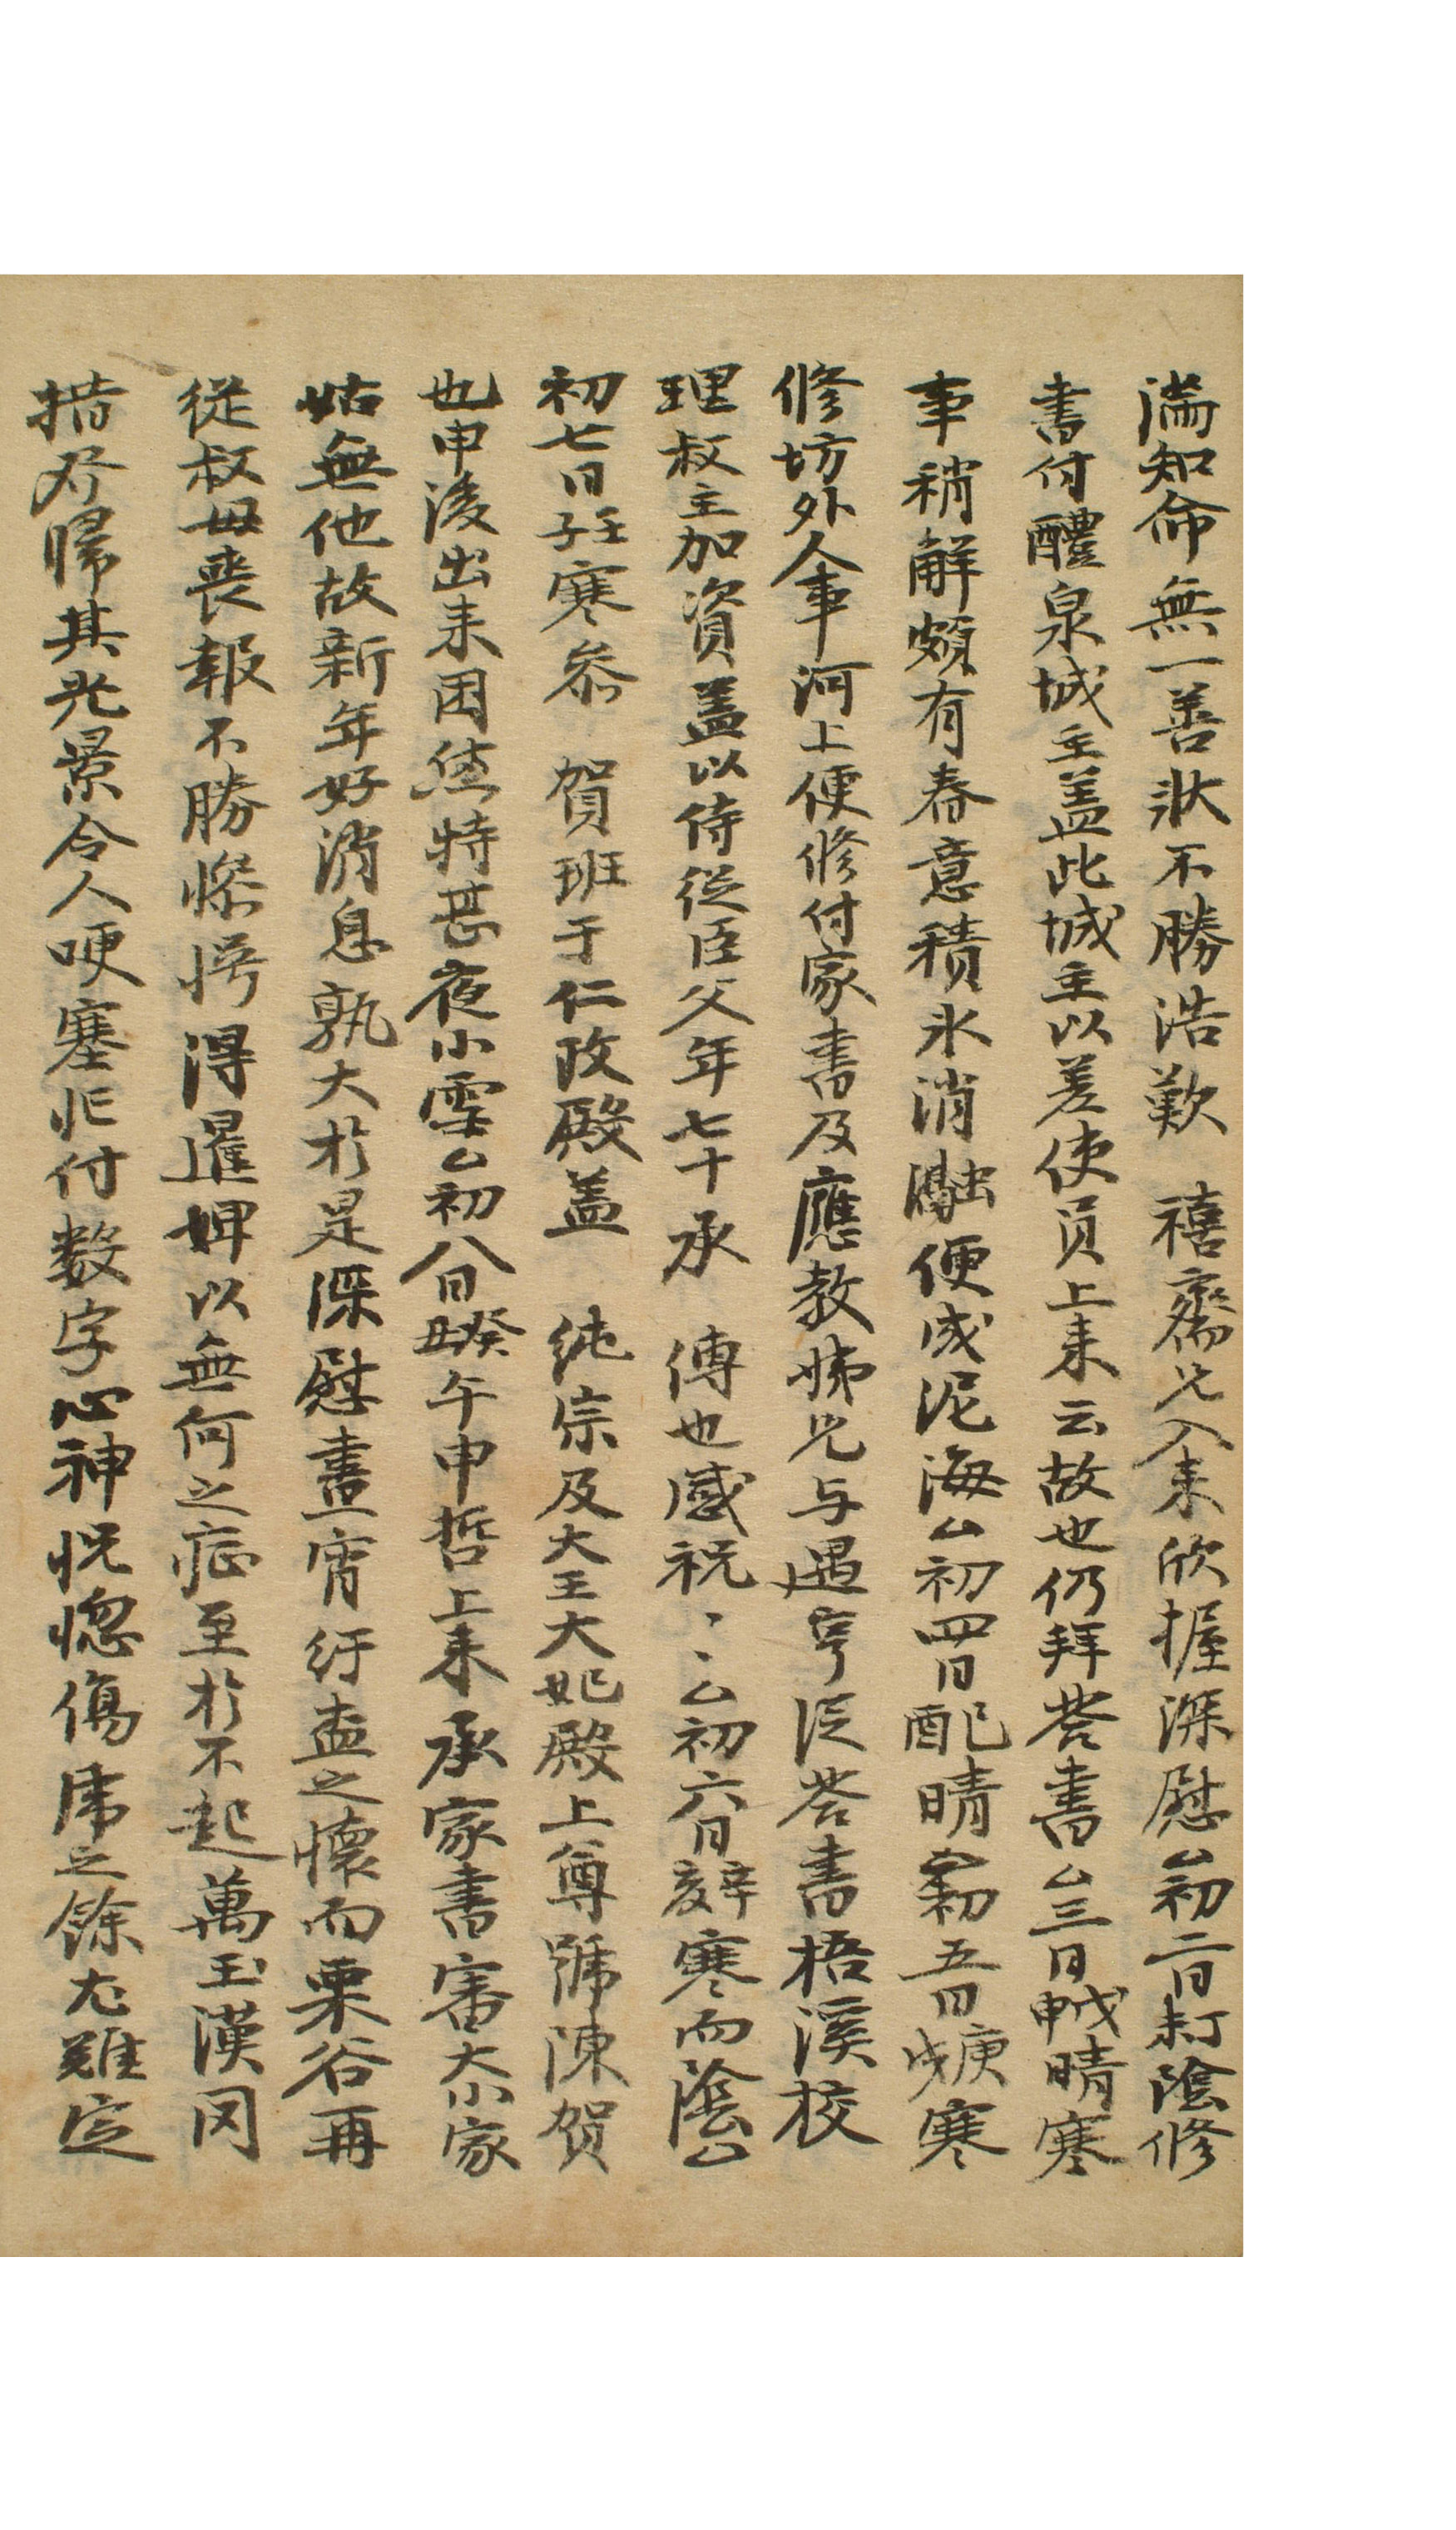 滿知命無一善狀不勝浩歎 禧齋兄入来欣握深慰△初二日丁未陰修
書付醴泉城主盖此城主以差使員上来云故也仍拜答書△三日戊申晴寒
事稍解頗有春意積氷消瀜便成泥海△初四日己酉晴寒△初五日庚戌寒
修坊外人事河上便修付家書及應教姊兄与遇亨從答書梧溪校
理叔主加資盖以侍從臣父年七十承 傳也感祝〻〻△初六日辛亥寒而陰△
初七日壬子寒叅 賀班于仁政殿盖 純宗及大王大妃殿上尊號陳賀
也申後出来困憊特甚夜小雪△初八日癸丑午申哲上来承家書審大小家
姑無他故新年好消息孰大於是深慰晝宵紆盍之懷而栗谷再
從叔母喪報不勝慘愕淂暹婢以無何之症至於不起萬玉漢罔
措夯歸其光景令人哽塞忙付数字心神怳惚傷虎之餘尤難定